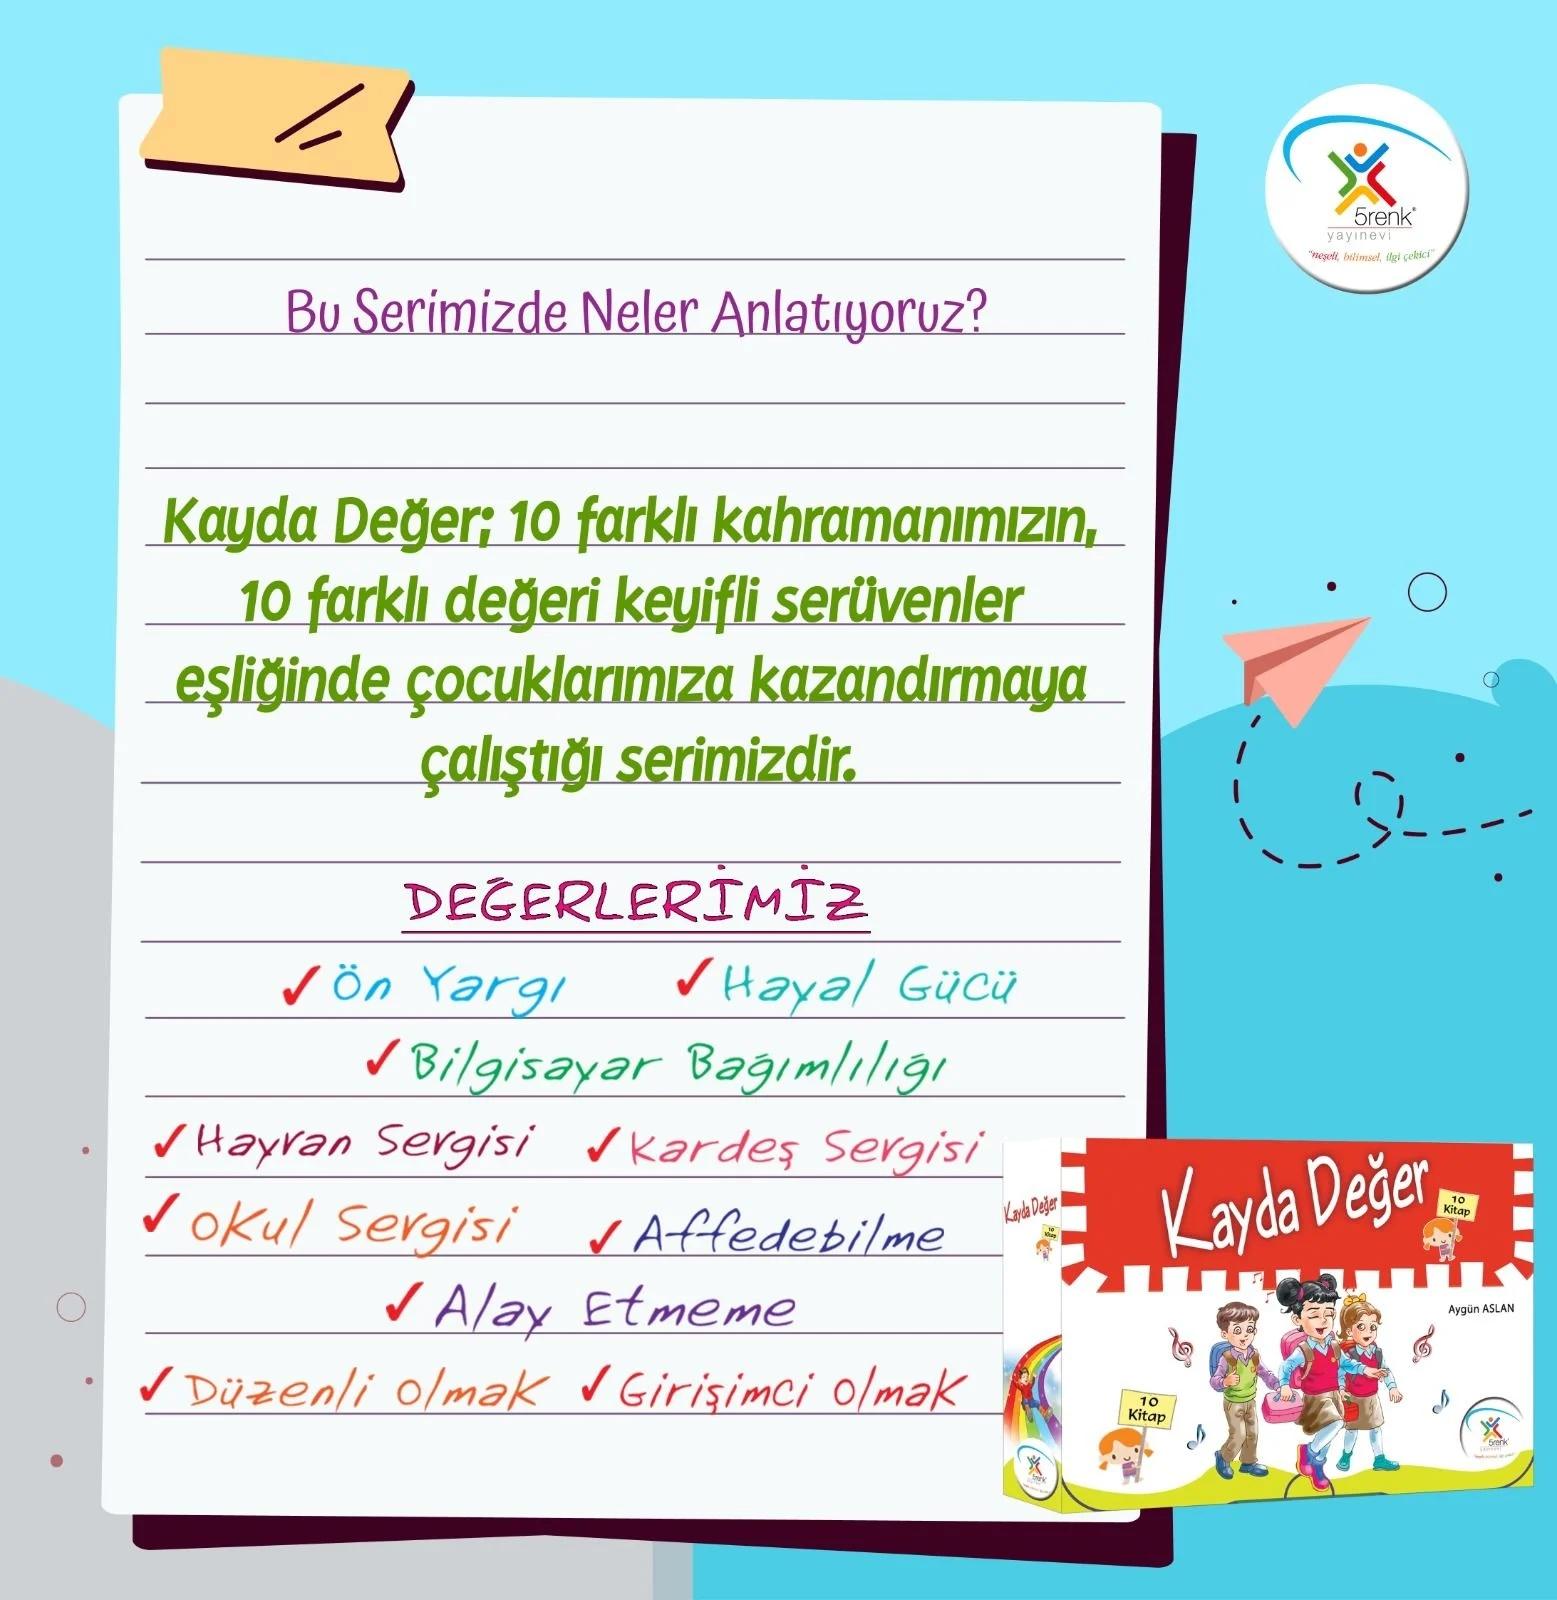 5renk®
yayınevi
"neşeli, bilimsel, ilgi çekici"
Bu Serimizde Neler Anlatıyoruz?
Kayda Değer; 10 farklı kahramanımızın,
10 farklı değeri keyifli serüvenler
eşliğinde çocuklarımıza kazandırmaya
çalıştığı serimizdir.
DEĞERLERİMİZ
✓ Ön Yargı ✓ Hayal Gücü
✓ Bilgisayar Bağımlılığı
✓ Hayran Sergisi ✓ Kardeş Sergisi
✓ Okul Sergisi ✓ Affedebilme
✓ Alay Etmeme
✓ Düzenli Olmak ✓ Girişimci Olmak
Kayda Değer
10
Kitap
Kayda Değer
10
Kitap
Aygün ASLAN
10
Kitap
5renk
yayınevi
5renk